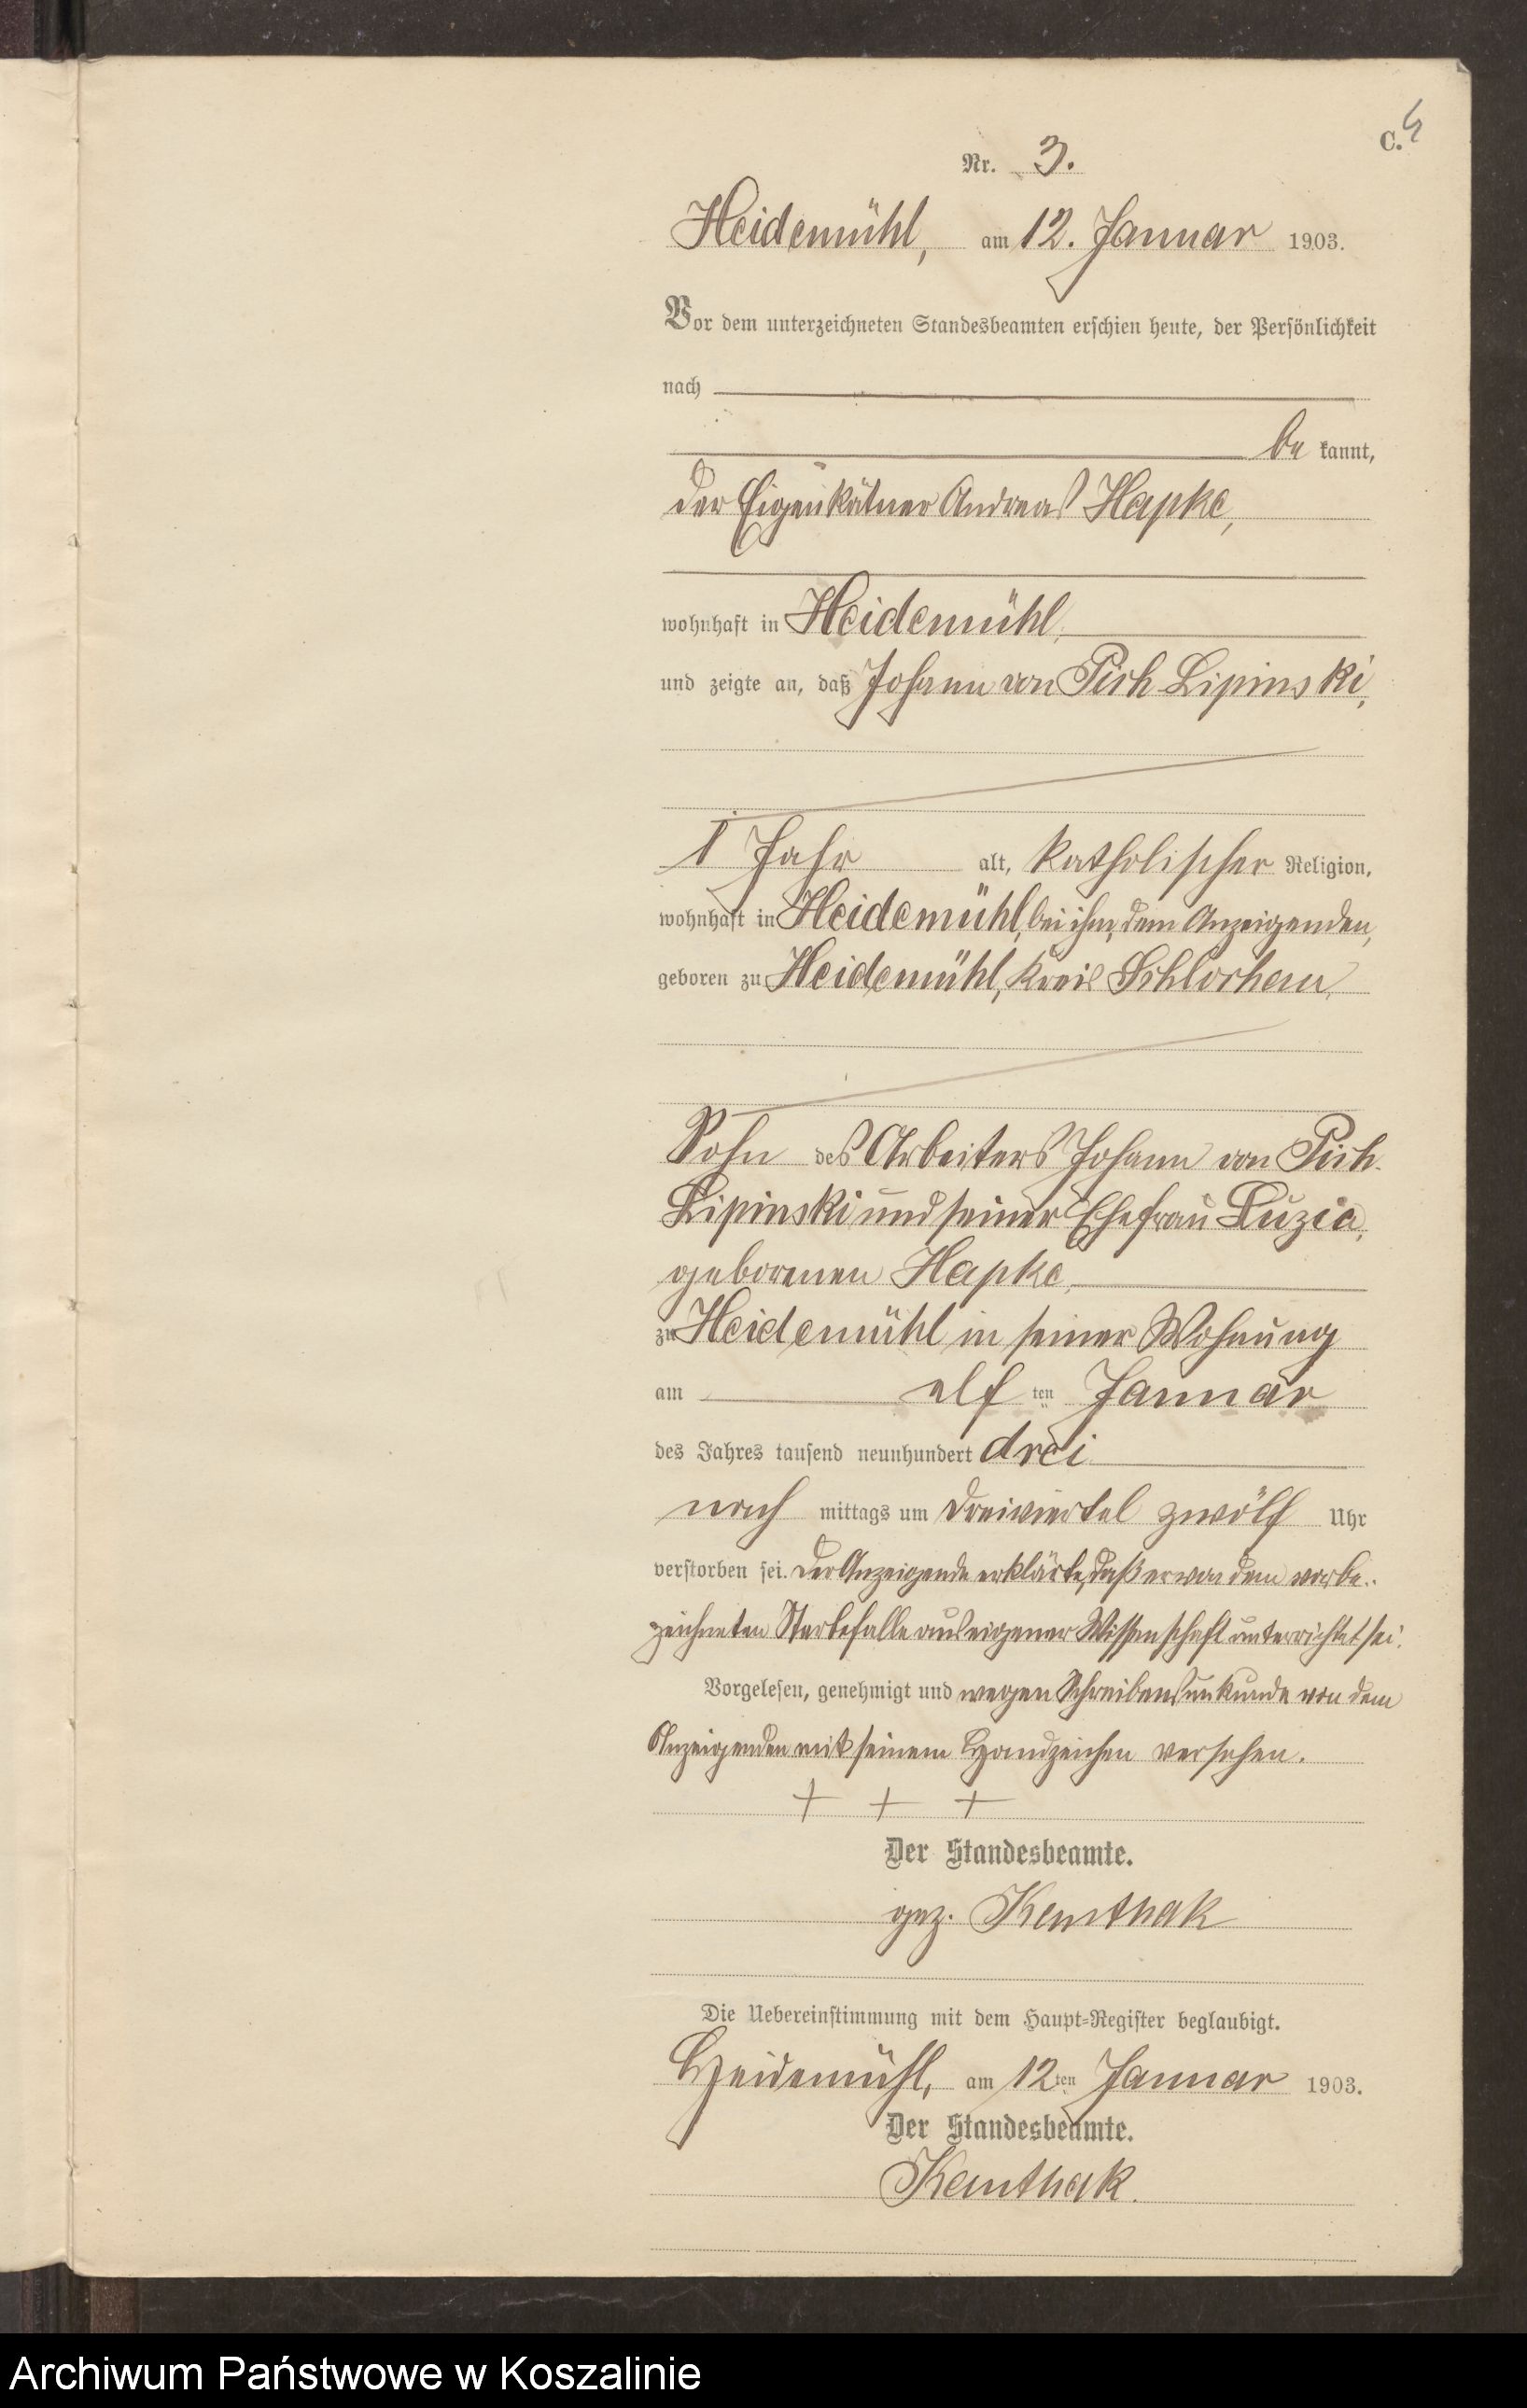 C. 4
Nr. 3.
Heidemühl, am 12. Januar 1903.
Vor dem unterzeichneten Standesbeamten erschien heute, der Persönlichkeit
nach
be kannt,
der Eigenkätner Andreas Hapke,
wohnhaft in Heidemühl,
und zeigte an, daß Johann von Pich Lipinski,
1 Jahr alt, katholischer Religion,
wohnhaft in Heidemühl, bei ihm, dem Anzeigenden,
geboren zu Heidemühl, Kreis Schlochau,
Sohn des Arbeiters Johann von Pich
Lipinski und seiner Ehefrau Luzia,
geborenen Hapke,
zu Heidemühl in seiner Wohnung
am elf ten Januar
des Jahres tausend neunhundert drei
nach mittags um dreiviertel zwölf Uhr
verstorben sei. Der Anzeigende erklärte, daß er von dem vorbe-
zeichneten Sterbefalle aus eigener Wissenschaft unterrichtet sei.
Vorgelesen, genehmigt und wegen Schreibensunkunde von dem
Anzeigenden mit seinem Handzeichen versehen.
+ + +
Der Standesbeamte.
gez. Kemthak
Die Uebereinstimmung mit dem Haupt-Register beglaubigt.
Heidemühl, am 12ten Januar 1903.
Der Standesbeamte.
Kemthak.
Archiwum Państwowe w Koszalinie